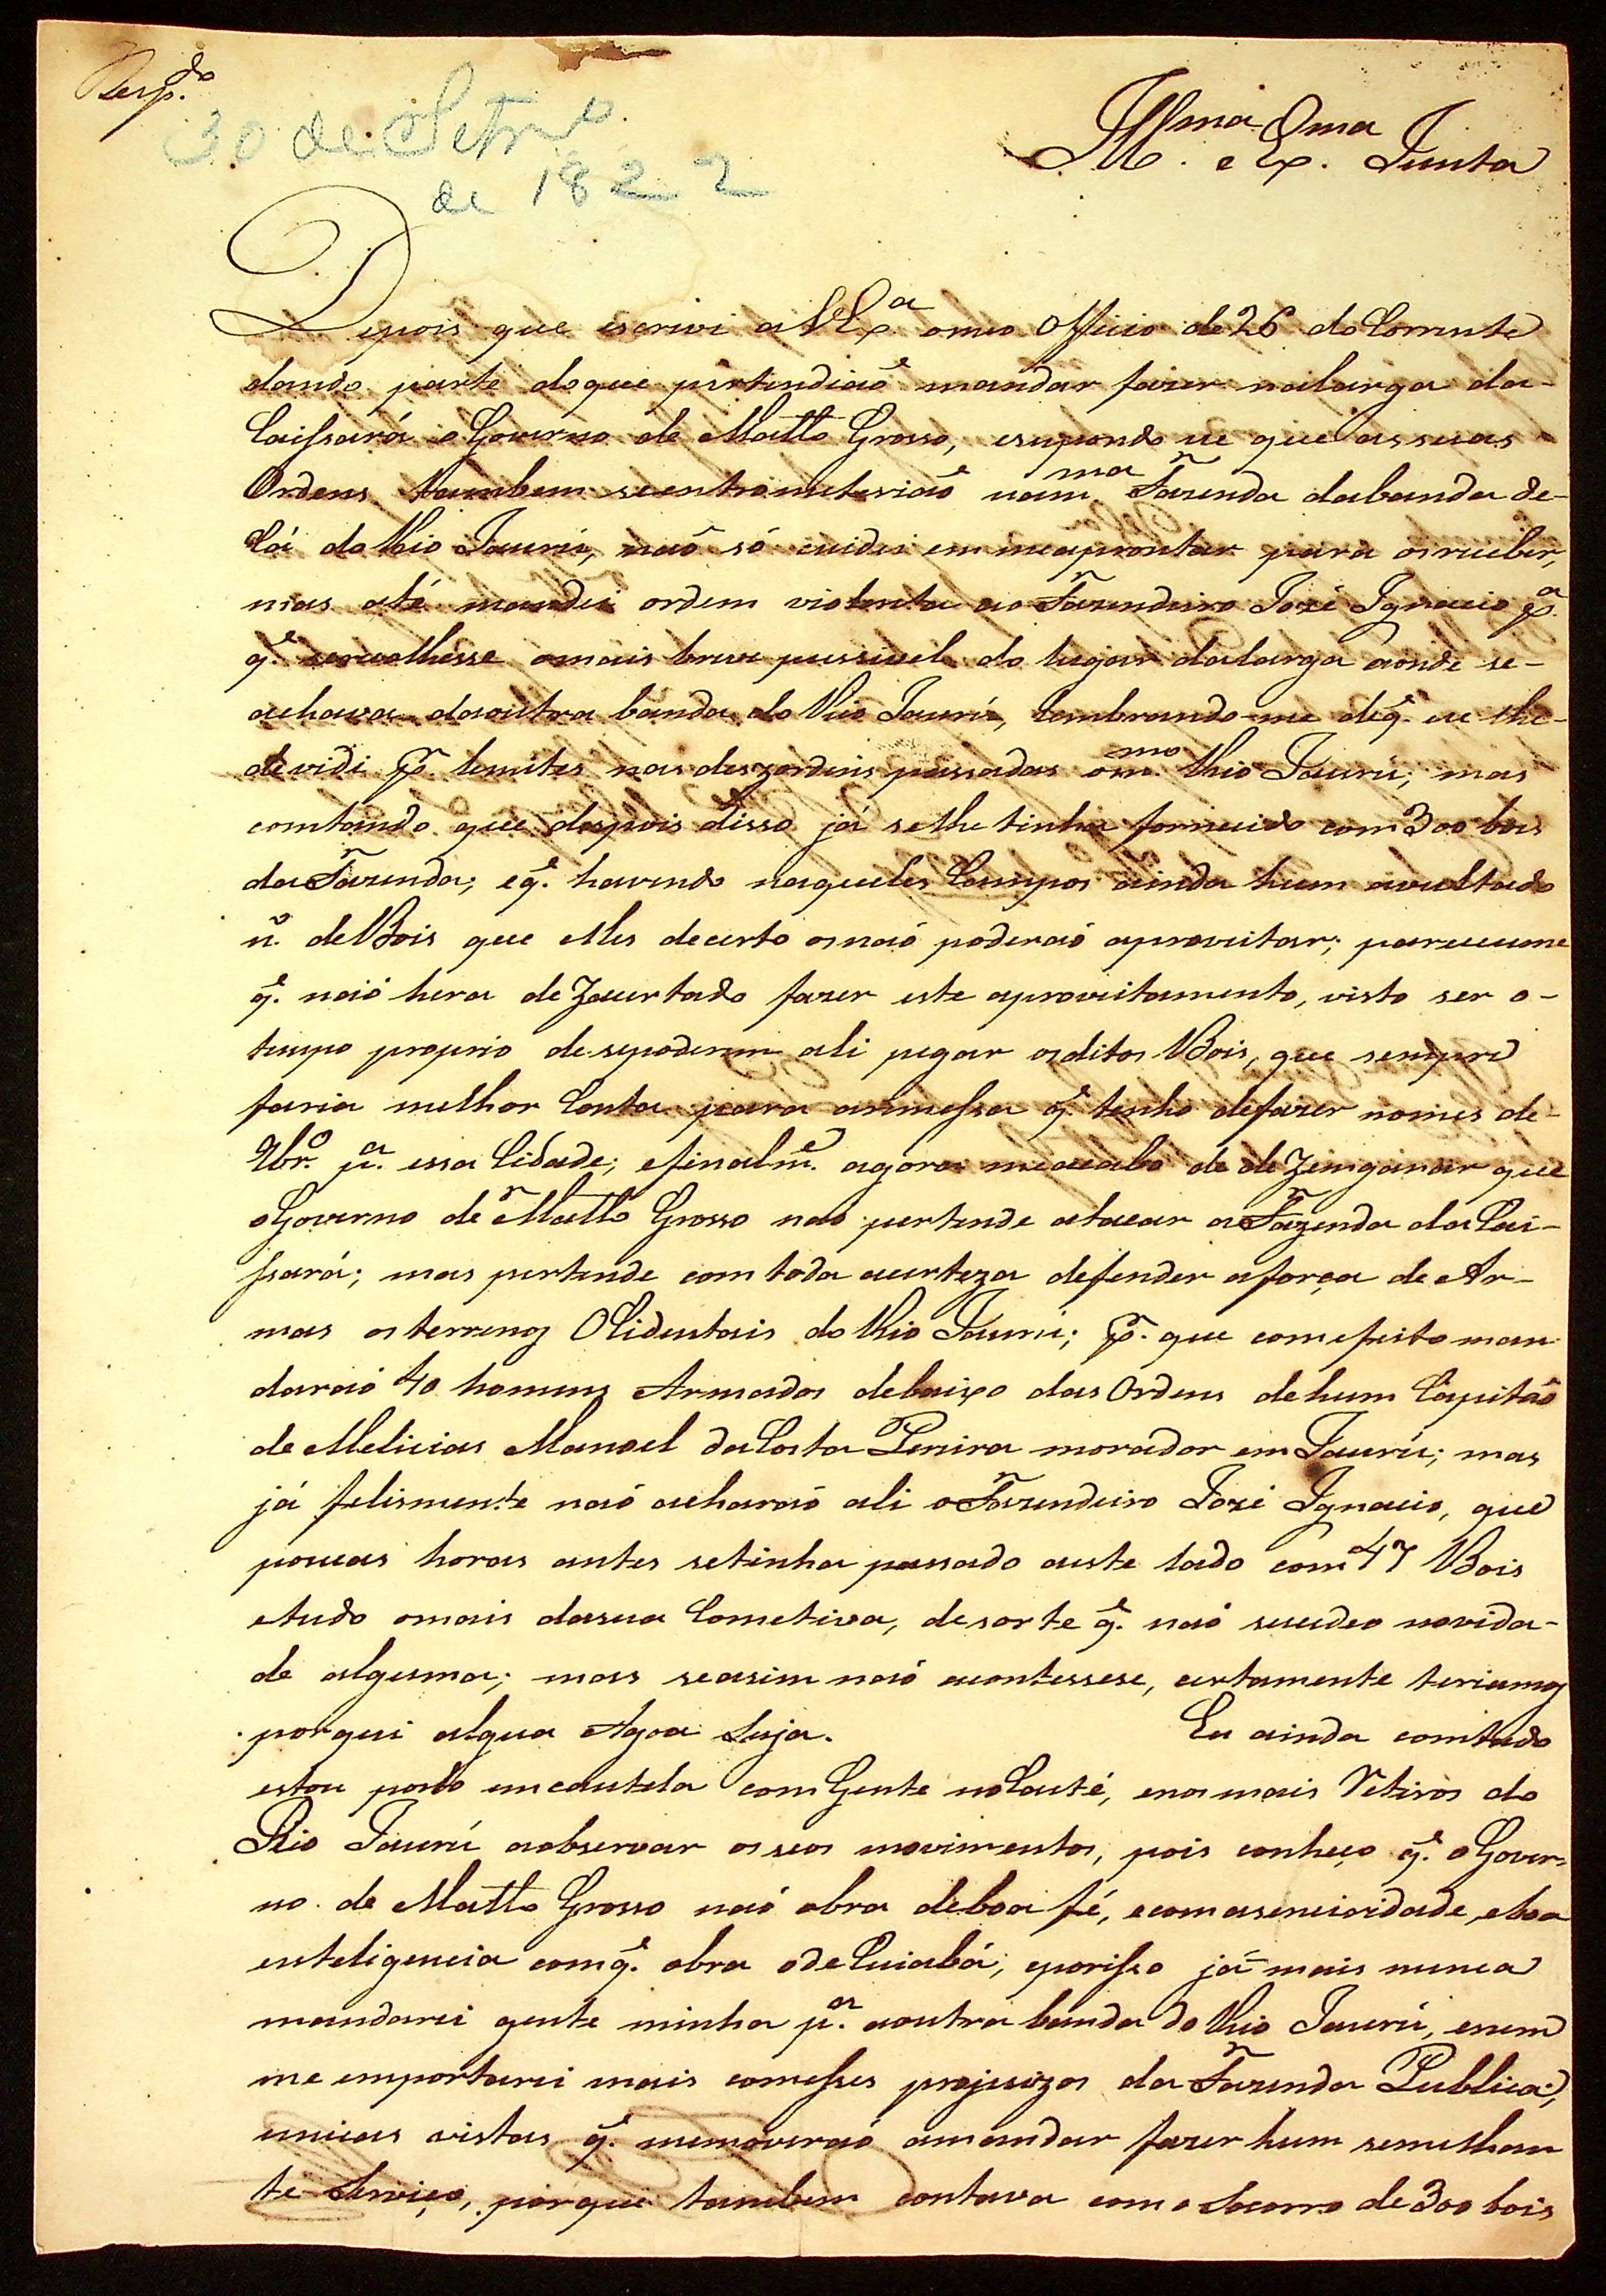 Resp.do
30 de Setr.o
de 1822
Ill.ma e Ex.ma Junta
Depois que escrivi a VEx.a omeo Officio de 26 do Corrente
dando parte doque pertendiaõ mandar fazer nalarga da-
Caissará o Governo de Matto Grosso, esupondo eu que assuas
Ordens tambem seentrometeriaõ nam.ma Fazenda dabanda de-
lá do Rio Jaurú, naõ só cuidei em meaprontar para osreceber,
mas até mandei ordem violenta ao Fazendeiro Jozé Ignacio p.a
q.e serecolhesse omais breve pussivel do lugar dalarga aonde se-
achava daoutra banda do Rio Jaurú, lembrando-me deq.e eu lhe-
devidi p.r lemites nasdeszordens passadas om.mo Rio Jaurú; mas
comtando que despois disso já selhe tinha fornecido com 300 bois
da Fazenda; eq.e havendo naqueles Campos ainda hum avultado
n.o de Bois que elles decerto osnaõ poderaõ aproveitar; pareceume
q.e naõ hera deZacertado fazer este aproveitamento, visto ser o-
tempo proprio desepoderem ali pegar osditos Bois, que sempre
faria melhor Conta para aremessa q.e tenho defazer nomes de-
9br.o p.a essa Cidade; efinalm.e agora meacabo de deZenganar que
oGoverno de Matto Grosso nao pertende atacar a Fazenda da Cai-
ssará; mas pertende comtoda acerteza defender aforça de Ar-
mas osterrenos Ocidentais do Rio Jaurú; p.r que comefeito man
daraõ 40 homens Armados debaixo das Ordens dehum Capitaõ
de Melicias Manoel daCosta Pereira morador em Jaurú; mas
já felismente naõ acharaõ ali o Fazendeiro Jozé Ignacio, que
poucas horas antes setinha passado aeste lado com 47 Bois
etudo omais dasua Cometiva, desorte q.e naõ sucedeo novida-
de alguma; mas seasim naõ acontessese, certamente teriamos
porqui algua Agoa Suja. Eu ainda comtudo
estou posto emcautela com Gente no Cauté, enosmais Retiros do
Rio Jaurú aobservar osseos movimentos, pois conheço q.e oGover-
no de Matto Grosso naõ obra deboa fé, ecomasencioridade, eboa
enteligencia comq.e obra ode Cuiabá, eporisso já-mais nunca
mandarei gente minha p.a aoutra banda do Rio Jaurú, enem
me emportarei mais comesses projuizos da Fazenda Publica,
unicas vistas q.e memoveraõ amandar fazer hum semelhan
te Serviço, porque tambem contava como Socorro de 300 bois